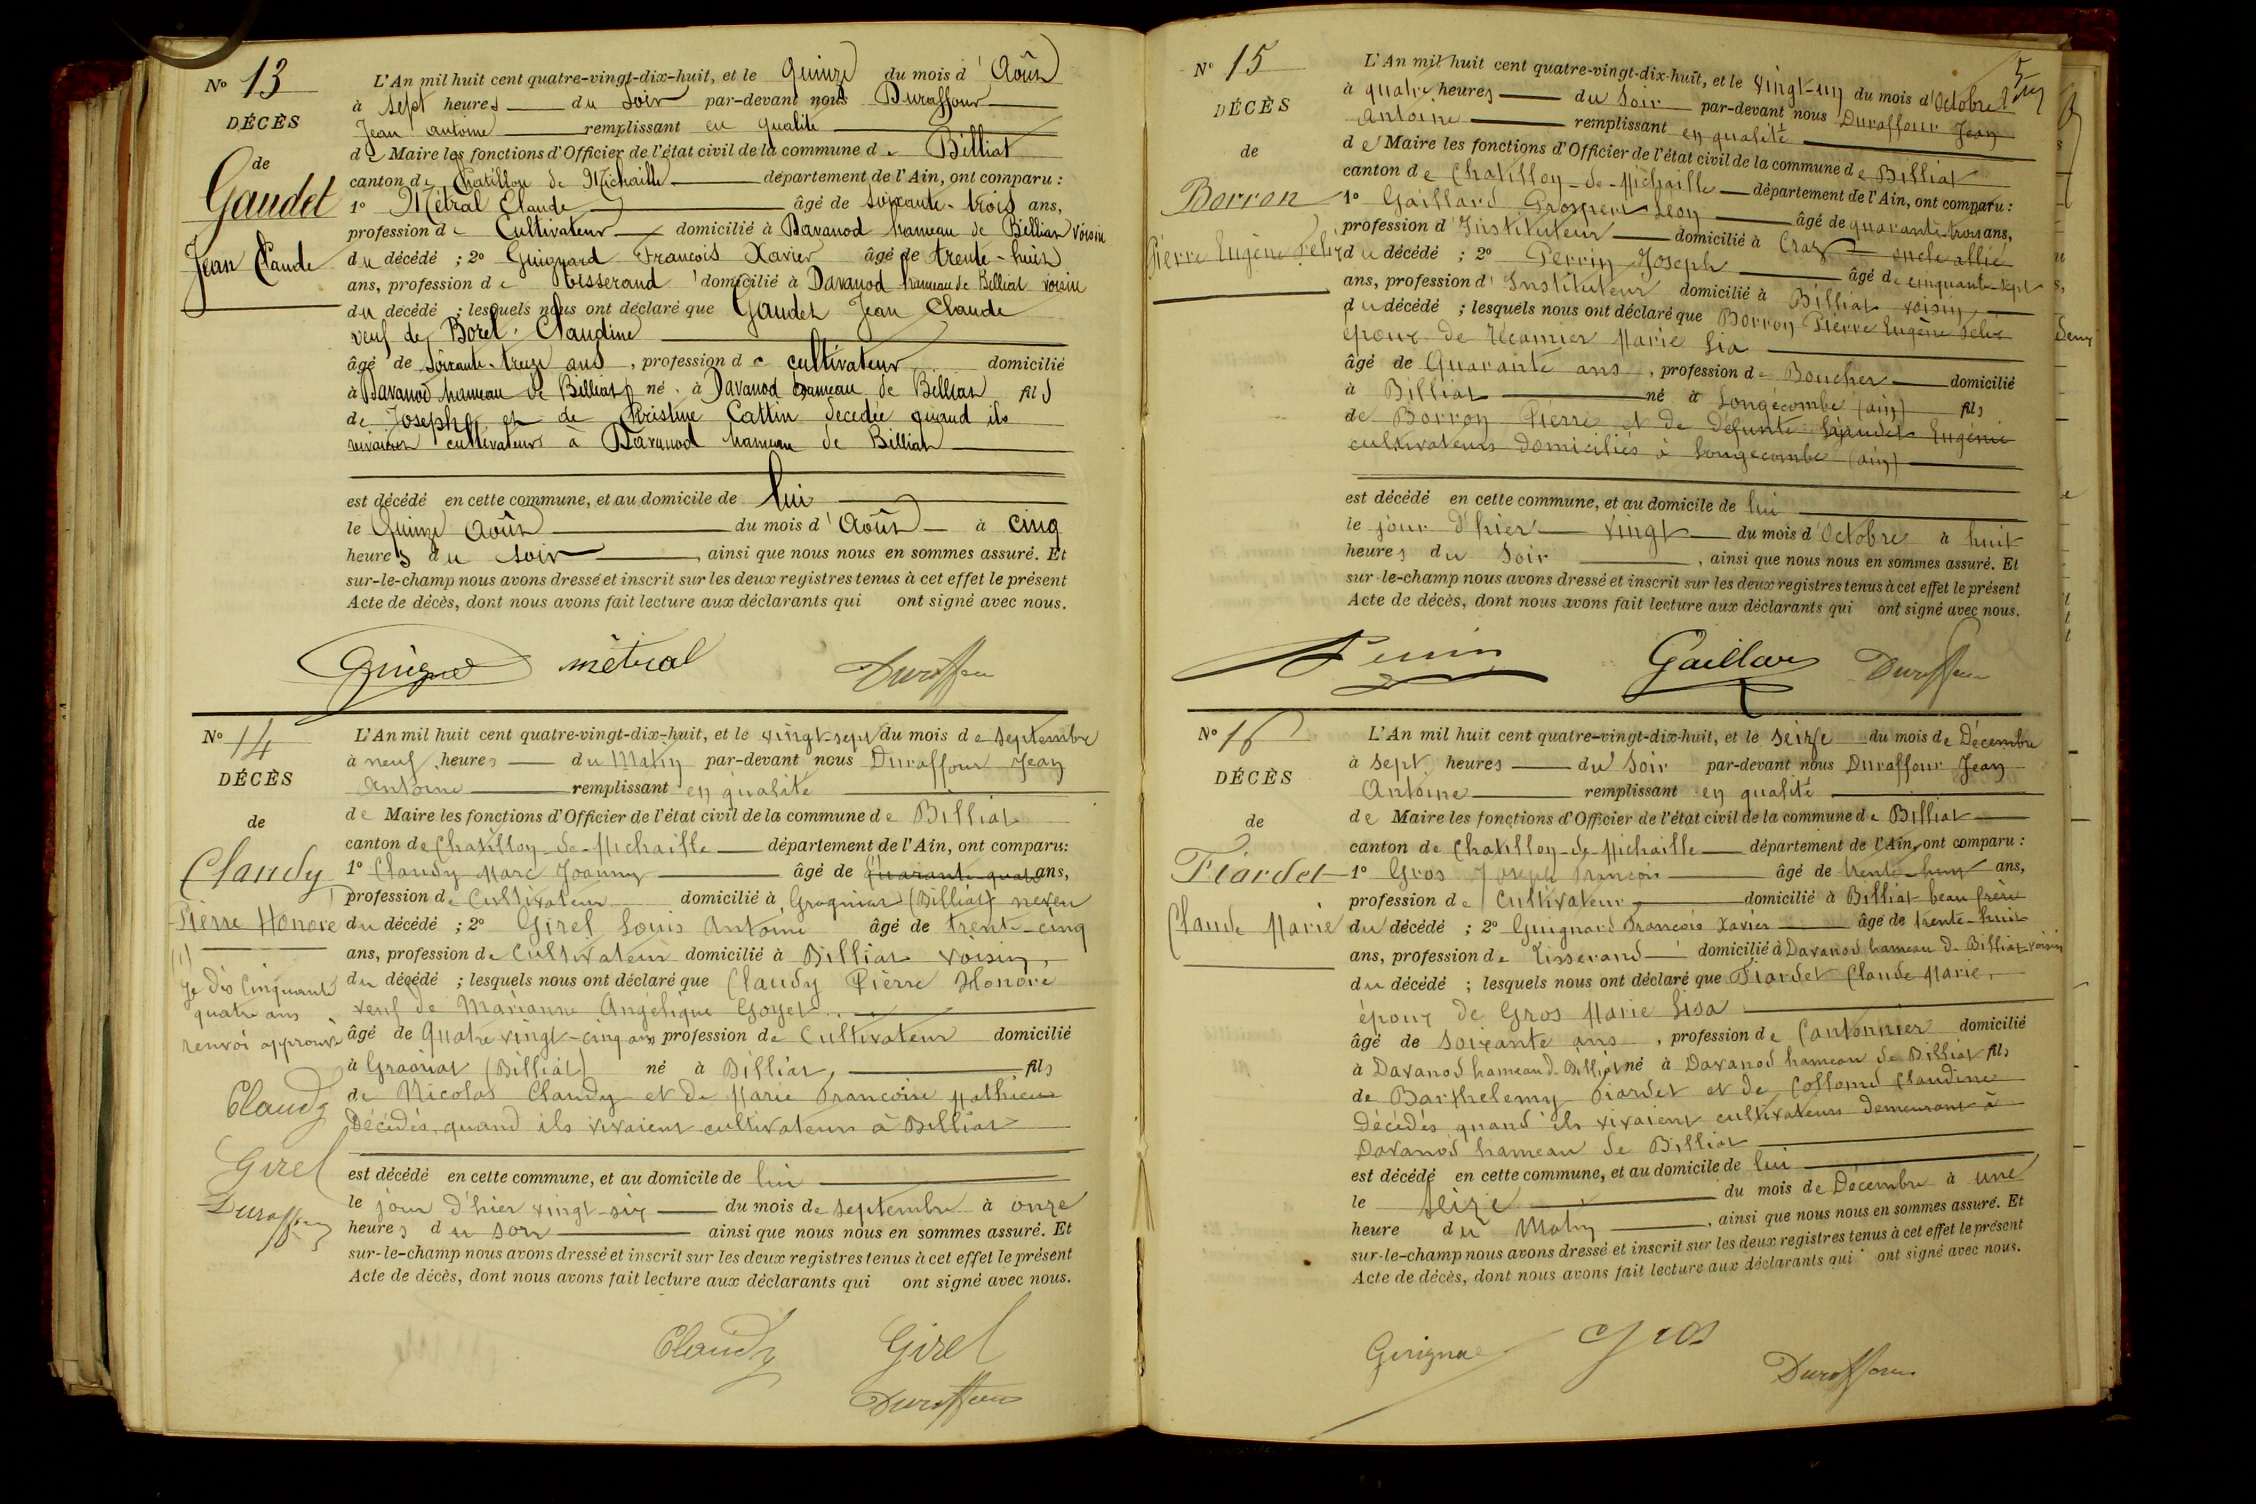 N° 13
DÉCÈS
de
Gaudet
Jean Claude
L'An mil huit cent quatre-vingt-dix-huit, et le quinze du mois d'Août
à sept heures du soir par-devant nous Duraffour
Jean antoine remplissant en qualité
de Maire les fonctions d'Officier de l'état civil de la commune de Billiat
canton de Chatillon de Michaille département de l'Ain, ont comparu :
1° Métral Claude âgé de soixante-trois ans,
profession de Cultivateur domicilié à Davanod hameau de Billiat voisin
du décédé ; 2° Guignard François Xavier âgé de trente-huit
ans, profession de tisserand domicilié à Davanod hameau de Billiat voisin
du décédé ; lesquels nous ont déclaré que Gaudet Jean Claude
veuf de Borel Claudine
âgé de soixante-treize ans, profession de cultivateur domicilié
à Davanod hameau de Billiat né à Davanod hameau de Billiat fils
de Joseph et de Christine Cattin decedée quand ils
vivaient cultivateur à Davanod hameau de Billiat
est décédé en cette commune, et au domicile de lui
le Quinze Août du mois d'Août à cinq
heures du soir, ainsi que nous nous en sommes assuré. Et
sur-le-champ nous avons dressé et inscrit sur les deux registres tenus à cet effet le présent
Acte de décès, dont nous avons fait lecture aux déclarants qui ont signé avec nous.
métral Duraffour
N° 14
DÉCÈS
de
Claudy
Pierre Honoré
(1)
Je dis Cinquante
quatre ans
renvoi approuvé
Claudy
Girel
Duraffour
L'An mil huit cent quatre-vingt-dix-huit, et le vingt-sept du mois de septembre
à neuf heures du Matin par-devant nous Duraffour Jean
Antoine remplissant en qualité
de Maire les fonctions d'Officier de l'état civil de la commune de Billiat
canton de Chatillon-de-Michaille département de l'Ain, ont comparu:
1° Claudy Marc Joanny âgé de Quarante-quatre ans,
profession de Cultivateur domicilié à Grogniat (Billiat) neveu
du décédé ; 2° Girel Louis Antoine âgé de trente-cinq
ans, profession de Cultivateur domicilié à Billiat voisin
du décédé ; lesquels nous ont déclaré que Claudy Pierre Honoré
veuf de Marianne Angélique Goyet
âgé de Quatre vingt-cinq ans profession de Cultivateur domicilié
à (Billiat) né à Billiat, fils
de Nicolas Claudy et de Marie Francoise Mathieu
Décédés, quand ils vivaient cultivateurs à Billiat
est décédé en cette commune, et au domicile de lui
le jour d'hier vingt-six du mois de septembre à onze
heures du soir ainsi que nous nous en sommes assuré. Et
sur-le-champ nous avons dressé et inscrit sur les deux registres tenus à cet effet le présent
Acte de décès, dont nous avons fait lecture aux déclarants qui ont signé avec nous.
Claudy Girel
Duraffour
N° 15
DÉCÈS
de
Borron
Pierre Eugène Félix
L'An mil huit cent quatre-vingt-dix-huit, et le vingt-un du mois d'Octobre
à quatre heures du Soir par-devant nous Duraffour Jean
Antoine remplissant en qualité
de Maire les fonctions d'Officier de l'état civil de la commune de Billiat
canton de Chatillon-de-Michaille département de l'Ain, ont comparu :
1° Gaillard Prosper Léon âgé de quarante-trois ans,
profession d'Instituteur domicilié à Craz oncle allié
du décédé ; 2° Perrin Joseph âgé de cinquante-sept
ans, profession d'Instituteur domicilié à Billiat voisin
du décédé ; lesquels nous ont déclaré que Borron Pierre Eugène Félix
époux de Récamier Marie Lia
âgé de Quarante ans, profession de Boucher domicilié
à Billiat né à Songécombe (ain) fils
de Borron Pierre et de défunte Eugénie
cultivateurs domiciliés à Songecombe (ain)
est décédé en cette commune, et au domicile de lui
le jour d'hier vingt du mois d'Octobre à huit
heures du soir, ainsi que nous nous en sommes assuré. Et
sur-le-champ nous avons dressé et inscrit sur les deux registres tenus à cet effet le présent
Acte de décès, dont nous avons fait lecture aux déclarants qui ont signé avec nous.
Gaillard Duraffour
N° 16
DÉCÈS
de
Fiardet
Claude Marie
L'An mil huit cent quatre-vingt-dix-huit, et le seize du mois de Décembre
à sept heures du Soir par-devant nous Duraffour Jean
Antoine remplissant en qualité
de Maire les fonctions d'Officier de l'état civil de la commune de Billiat
canton de Chatillon-de-Michaille département de l'Ain, ont comparu :
1° Gros Joseph François âgé de trente-neuf ans,
profession de Cultivateur domicilié à Billiat beau frère
du décédé ; 2° Guignard François Xavier âgé de trente-huit
ans, profession de Tisserand domicilié à Davanod hameau de Billiat voisin
du décédé ; lesquels nous ont déclaré que Fiardet Claude Marie
époux de Gros Marie Lisa
âgé de soixante ans, profession de Cantonnier domicilié
à Davanod hameau de Billiat né à Davanod hameau de Billiat fils
de Barthelemy Fiardet et de Collomb Claudine
Décédés quand ils vivaient cultivateurs demeurant à
Davanod hameau de Billiat
est décédé en cette commune, et au domicile de lui
le seize du mois de Décembre à une
heure du Matin, ainsi que nous nous en sommes assuré. Et
sur-le-champ nous avons dressé et inscrit sur les deux registres tenus à cet effet le présent
Acte de décès, dont nous avons fait lecture aux déclarants qui ont signé avec nous.
Gros
Duraffour